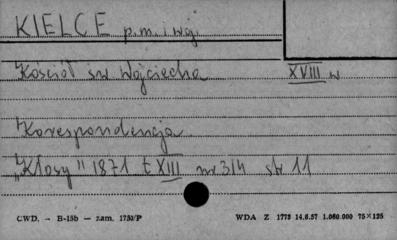 KIELCE p.m. i woj.
Kościół św Wojciecha XVIII w
Korespondencja
"Kłosy" 1871 t XIII nr 314 str 11
CWD. — B-15b — zam. 1750/P WDA Z 1778 14.6.57 1.060.000 75×125